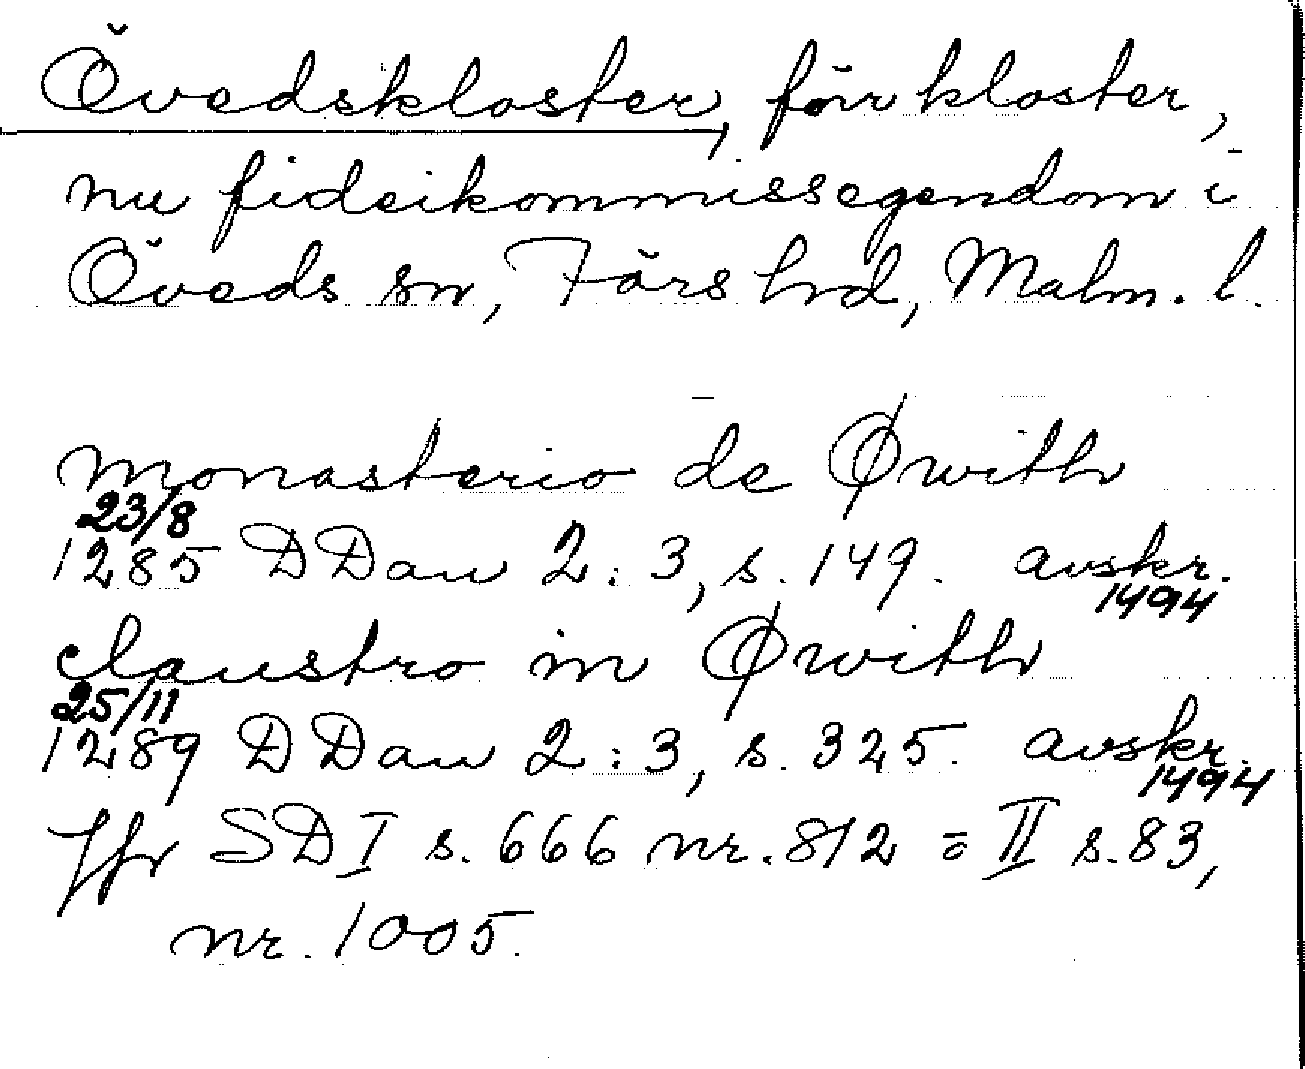 Övedskloster, förr kloster,
nu fideikommissegendom i
Öveds sn, Färs hd, Malm. l.
monasterio de Øwith
23/8
1285 DDan 2:3, s. 149. avskr.
1494
claustro in Øwith
25/11
1289 DDan 2:3, s. 325. avskr.
1494
Jfr SD I s. 666 nr. 812 = II s. 83,
nr. 1005.